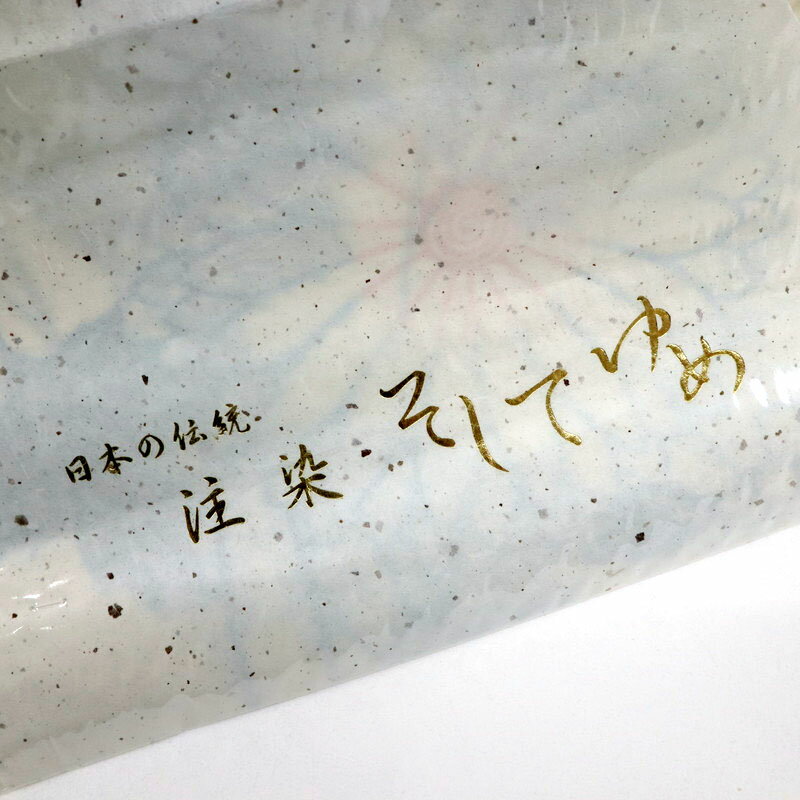 日本の伝統
注染・そしてゆめ